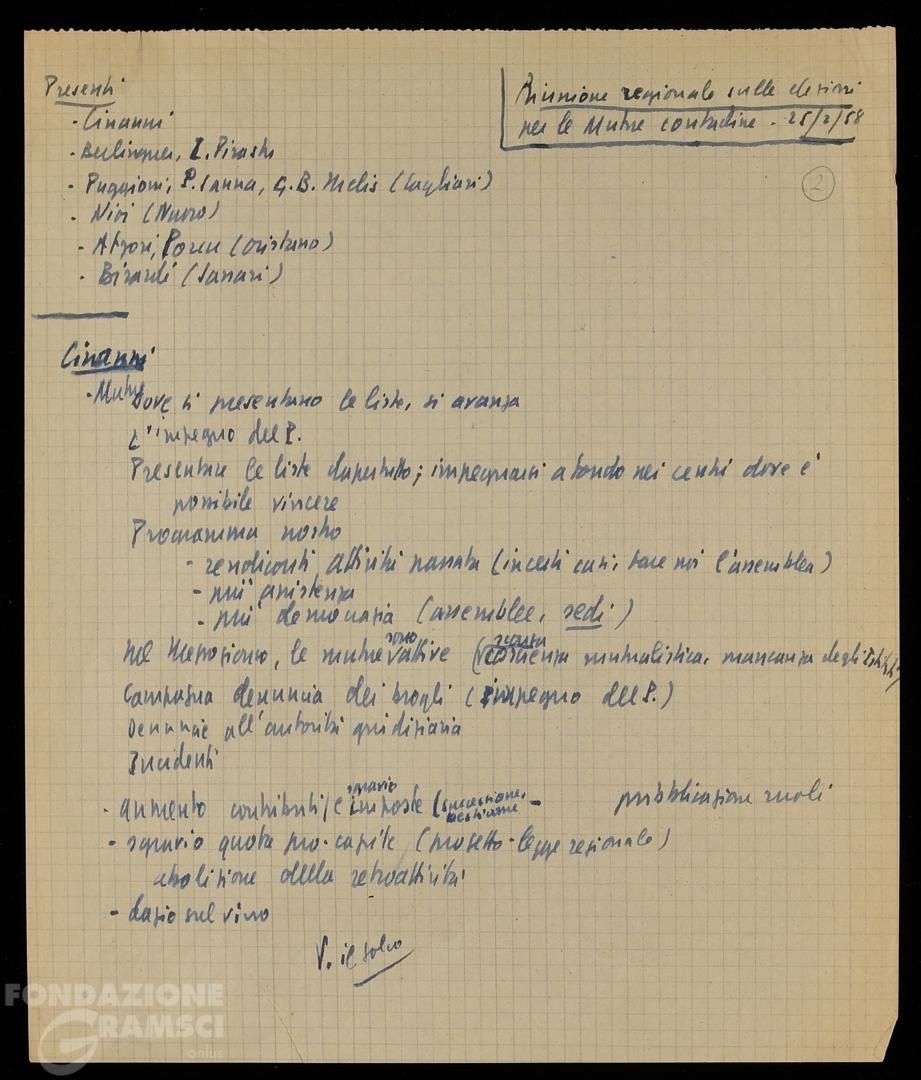 Riunione regionale sulle elezioni
per le Mutue contadine - 25/2/58
2
Presenti
- Cinanni
- Berlinguer, I. Pirastu
- Puggioni, P. Canna, G. B. Melis (Cagliari)
- Nioi (Nuoro)
- Atzori, (Oristano)
- Birardi (Sassari)
Cinanni
- Mutue
Dove si presentano le liste, si avanza
L'impegno del P.
Presentare le liste dapertutto; impegnarsi a fondo nei centri dove è
possibile vincere
Programma nostro
- rendiconti attività passata (in certi casi, fare noi l'assemblea)
- più assistenza
- più democrazia (assemblee, sedi)
Nel Mezzogiorno, le mutue sono attive (scarsa coscienza mutualistica, mancanza degli
Campagna denuncia dei brogli (impegno del P.)
Denuncie all'autorità giudiziaria
Incidenti
- aumento contributi / e sgravio imposte (successione, bestiame - pubblicazione ruoli
- sgravio quota pro-capite (progetto-legge regionale)
abolizione della retroattività
- dazio sul vino
V. il solco
FONDAZIONE
GRAMSCI
onlus